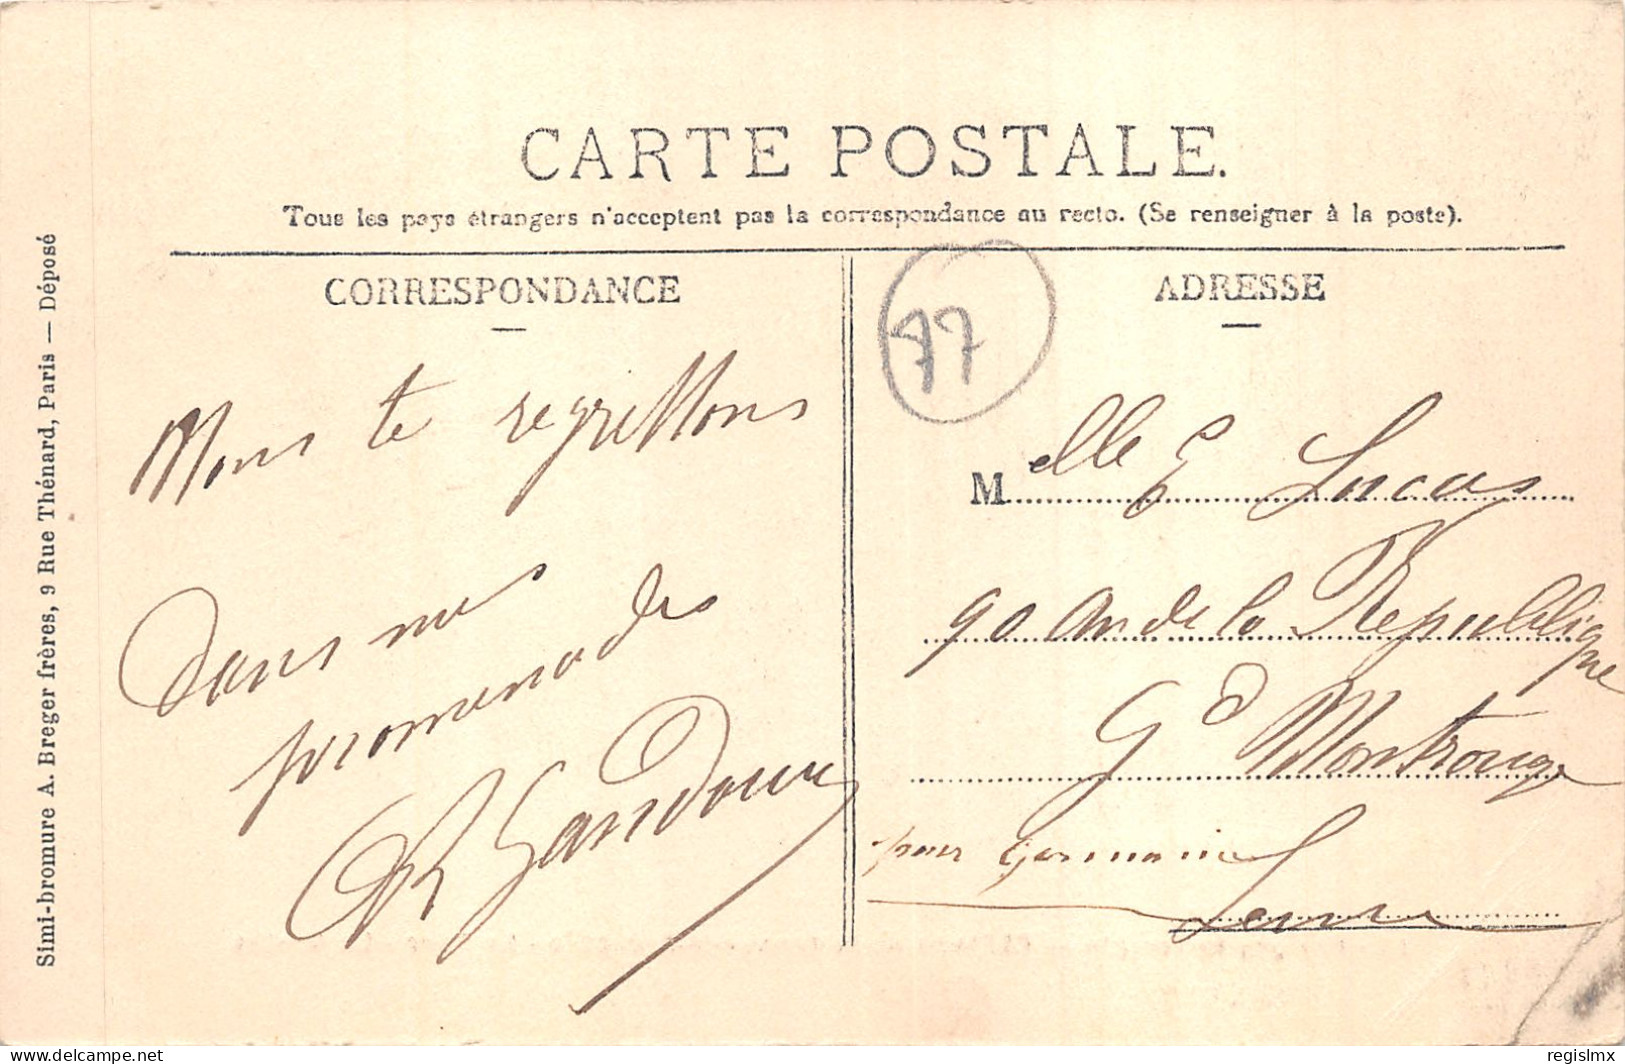 CARTE POSTALE.
Tous les pays étrangers n'acceptent pas la correspondance au recto. (Se renseigner à la poste).
Simi-bromure A. Breger frères, 9 Rue Thénard, Paris — Déposé
CORRESPONDANCE
Nous te regrettons
dans nos
promenades
77
ADRESSE
Melle E Lucas
90 Av de la République
Gd Montrouge
pour Germaine
delcampe.net
regislmx